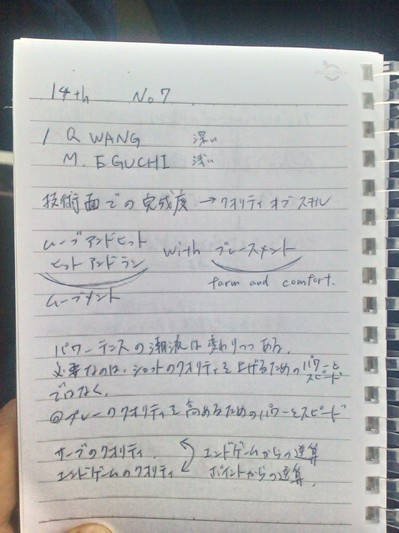 14th No7
1 Q WANG 深い
M. EGUCHI 浅い
技術面での完成度 → クオリティ オブ スキル
ムーブアンドヒット
ヒットアンドラン with プレースメント
ムーブメント form and comfort.
パワーテニスの潮流は変わりつつある.
必要なのは、ショットのクオリティを上げるためのパワーとスピード
ではなく、
@プレークオリティを高めるためのパワーとスピード
サーブのクオリティ エンドゲームからの逆算
エンドゲームのクオリティ ポイントからの逆算.